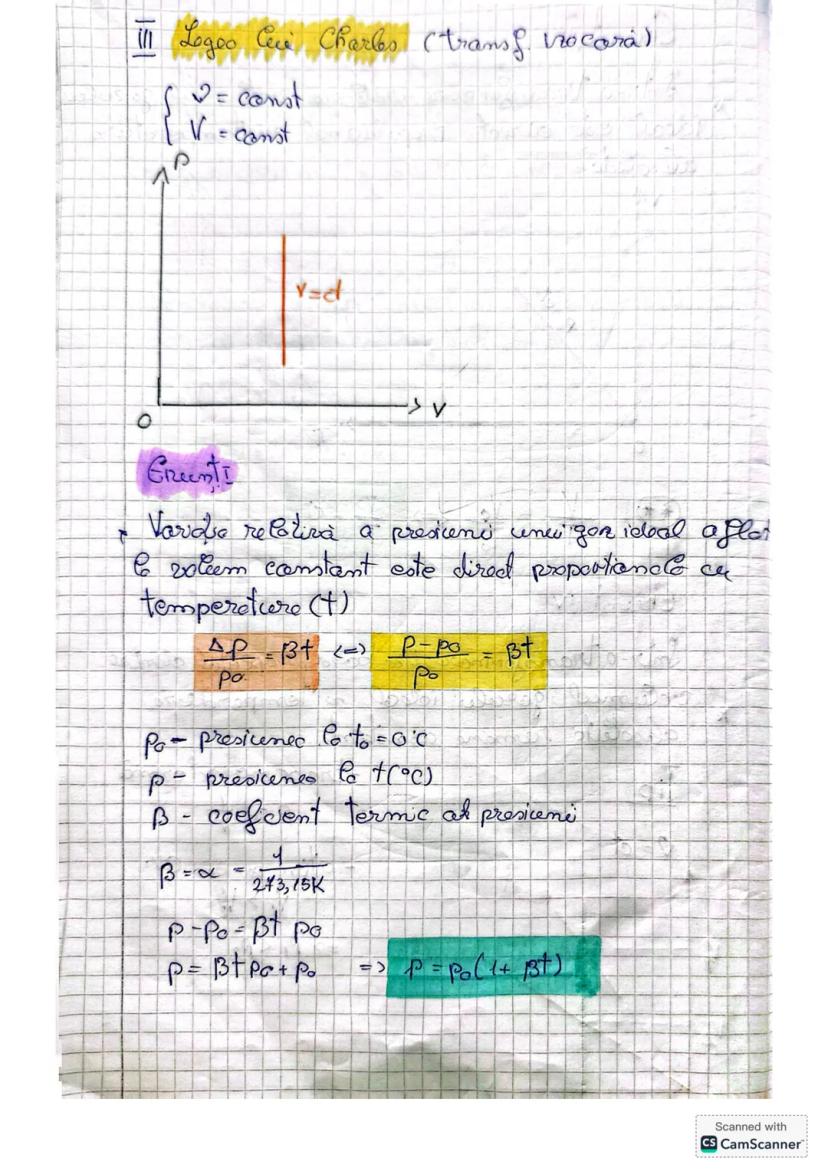 III Legea lui Charles (transf. izocoră)
ν = const
V = const
p
V=ct
V
O
Enunț
Variația relativă a presiunii unui gaz ideal aflat
la volum constant este direct proporțională cu
temperatura (t)
Δp/p₀ = βt <=> p-p₀/p₀ = βt
p₀ - presiunea la t₀ = 0°C
p - presiunea la t(°C)
β - coeficient termic al presiunii
β = α = 1/273,15K
p - p₀ = βt p₀
p = βt p₀ + p₀ => p = p₀(1 + βt)
Scanned with
CS CamScanner